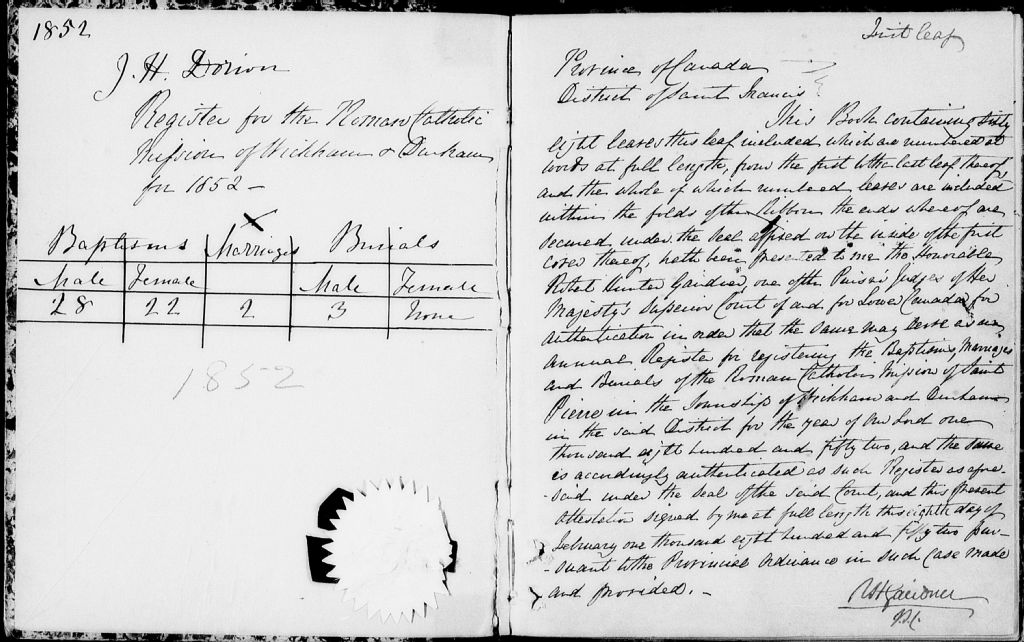 1852
J. H. Dorion
Register for the Roman Catholic
Mission of Wickham & Durham
for 1852 -
X
Baptisms Marriages Burials
Male Female Male Female
28 22 2 3 None
1852
First leaf
Province of Canada
District of Saint Francis
This Book containing sixty
eight leaves this leaf included which are numbered at
words at full length, from the first to the last leaf thereof,
and the whole of which numbered leaves are included
within the folds of the Ribbon the ends whereof are
secured under the Seal affixed on the inside of the first
cover thereof, hath been presented to me the Honorable
Robert Hunter Gairdner, one of the Puisne Judges of Her
Majesty's Superior Court of and for Lower Canada, for
authentication in order that the same may serve as an
annual Register for registering the Baptisms, Marriages
and Burials of the Roman Catholic Mission of Saint
Pierre in the Township of Wickham and Durham
in the said District for the year of Our Lord one
thousand eight hundred and fifty two, and the same
is accordingly authenticated as such Register as afore
-said under the Seal of the said Court, and this present
Attestation signed by me at full length this eighth day of
February one thousand eight hundred and fifty two pur-
-suant to the Provincial Ordinance in such case made
and provided. -
RHGairdner